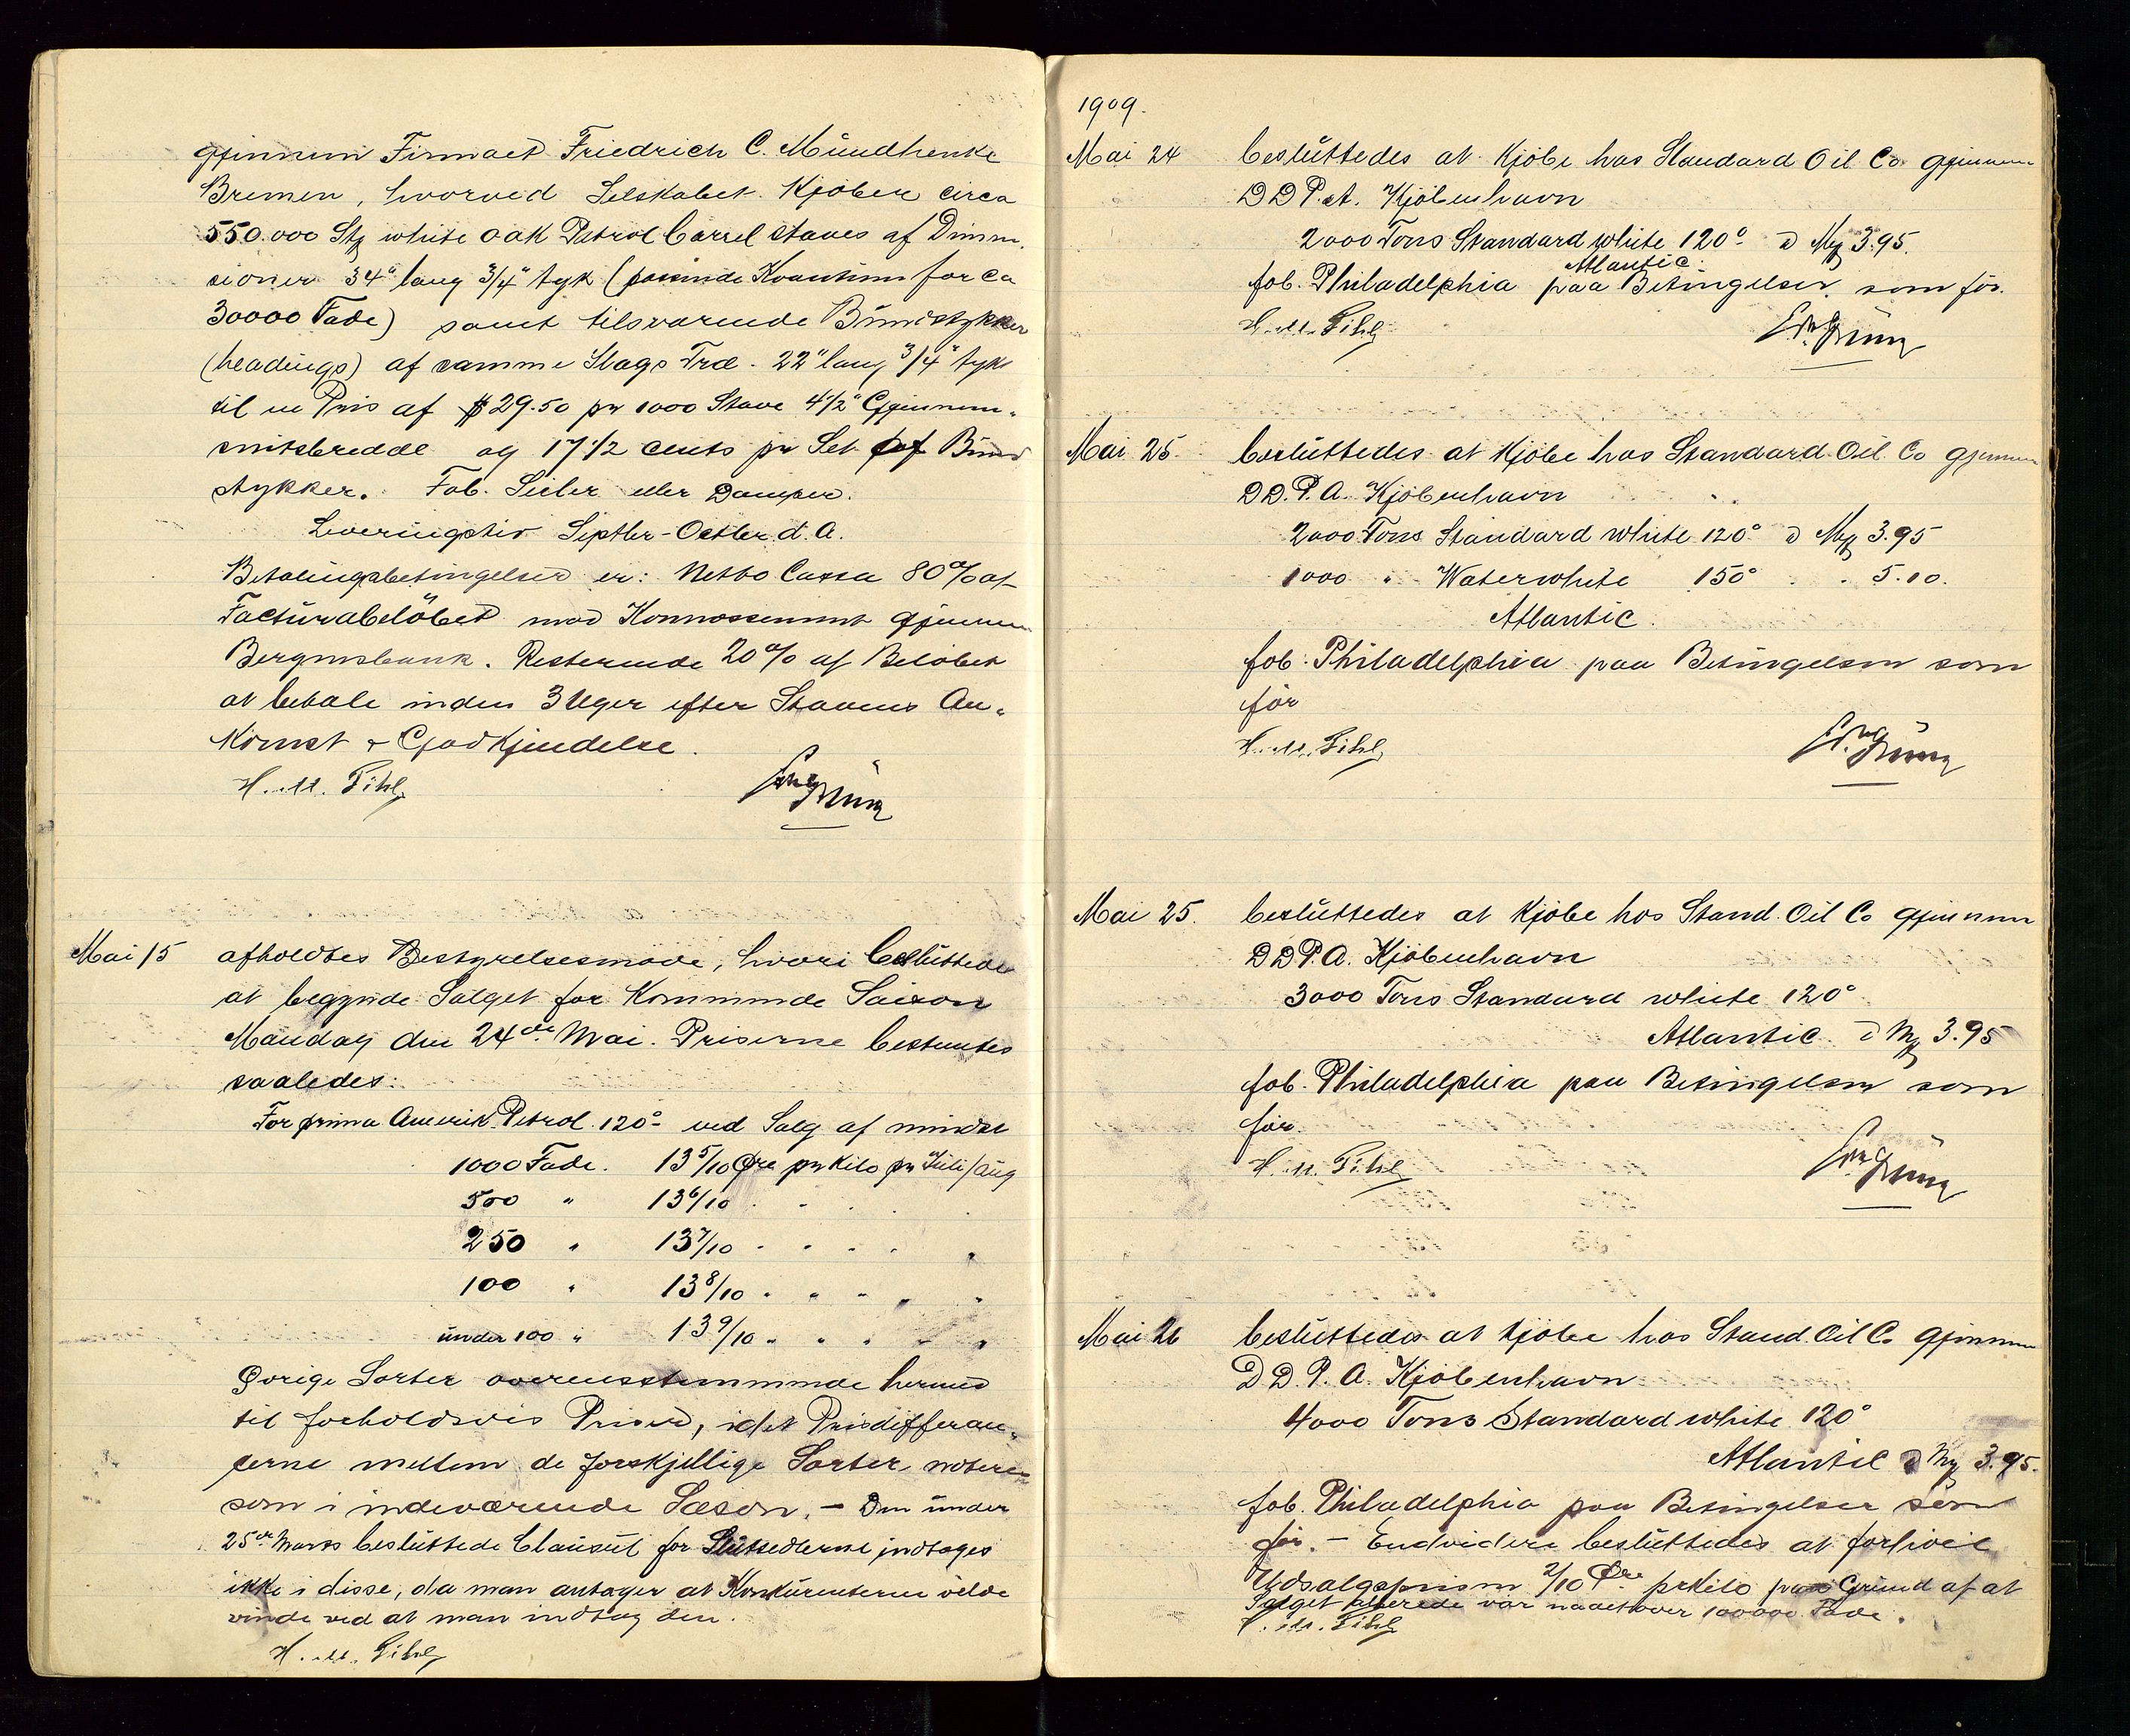 gjennem Firmaet Friedrich C. Mündhenke
Bremen, hvorved Selskabet Kjöber circa
550.000 Stk white oak Petrol barrel staves af Dimen-
sioner 34" lang 3/4" tyk (passende Kvantum for ca
30000 Fade) samt tilsvarende Bundstykker
(headings) af samme Slags Træ. 22" lang 3/4" tyk
til en Pris af $29.50 pr 1000 Stave 4 1/2" Gjennem-
snitsbredde og 17 1/2 cents pr Set af Bund
stykker. Fob. Seiler eller Damper.
Leveringstid Septbr-Octbr d. A.
Betalingsbetingelser er: Netto Cassa 80% af
Facturabelöbet mod Konnossement gjennem
Bergensbank. Resterende 20% af Belöbet
at betale inden 3 Uger efter Stavens An-
komst & Godkjendelse.
H. M. Pihl
Mai 15 afholdtes Bestyrelsesmöde, hvori besluttedes
at begynde Salget for Kommende Saison
Mandag den 24de Mai. Priserne bestemtes
saaledes:
For prima Amerik. Petrol. 120° ved Salg af mindst
1000 Fade. 13 5/10 Øre pr Kilo pr Juli/Aug
500 " 13 6/10 " " " "
250 " 13 7/10 " " " " "
100 " 13 8/10 " " " " "
under 100 " 13 9/10 " " " " "
Øvrige Sorter overensstemmende hermed
til forholdsvis Priser, idet Prisdifferan-
cerne mellem de forskjellige Sorter noteres
som i indeværende Sæson. - Den under
25de Marts besluttede Clausul for Slutsedlerne indtages
ikke i disse, da man antager at Konkurenterne vilde
vinde ved at man indtog den.
H. M. Pihl
1909.
Mai 24 besluttedes at Kjöbe hos Standard Oil Co gjennem
D D P. A. Kjöbenhavn
2000 Tons Standard white 120° à Mk 3.95.
Atlantic.
fob. Philadelphia paa Betingelser som för.
H. M. Pihl
Mai 25. besluttedes at Kjöbe hos Standard Oil Co gjennem
D D. P. A. Kjöbenhavn
2000 Tons Standard white 120° à Mk 3.95
1000 " Waterwhite 150° " " 5.10.
Atlantic.
fob. Philadelphia paa Betingelser som
för
H. M. Pihl
Mai 25. besluttedes at Kjöbe hos Stand. Oil Co gjennem
D D P. A. Kjöbenhavn
3000 Tons Standard white 120°
Atlantic à Mk 3.95
fob. Philadelphia paa Betingelser som
för.
H. M. Pihl
Mai 26 besluttedes at Kjöbe hos Stand. Oil Co gjennem
D D. P. A. Kjöbenhavn
4000 Tons Standard white 120°
Atlantic à Mk 3.95.
fob. Philadelphia paa Betingelser som
för. - Endvidere besluttedes at forhöie
Udsalgsprisen 2/10 Øre pr Kilo paa Grund af at
Salget allerede var naaet over 100000 Fade.
H. M. Pihl